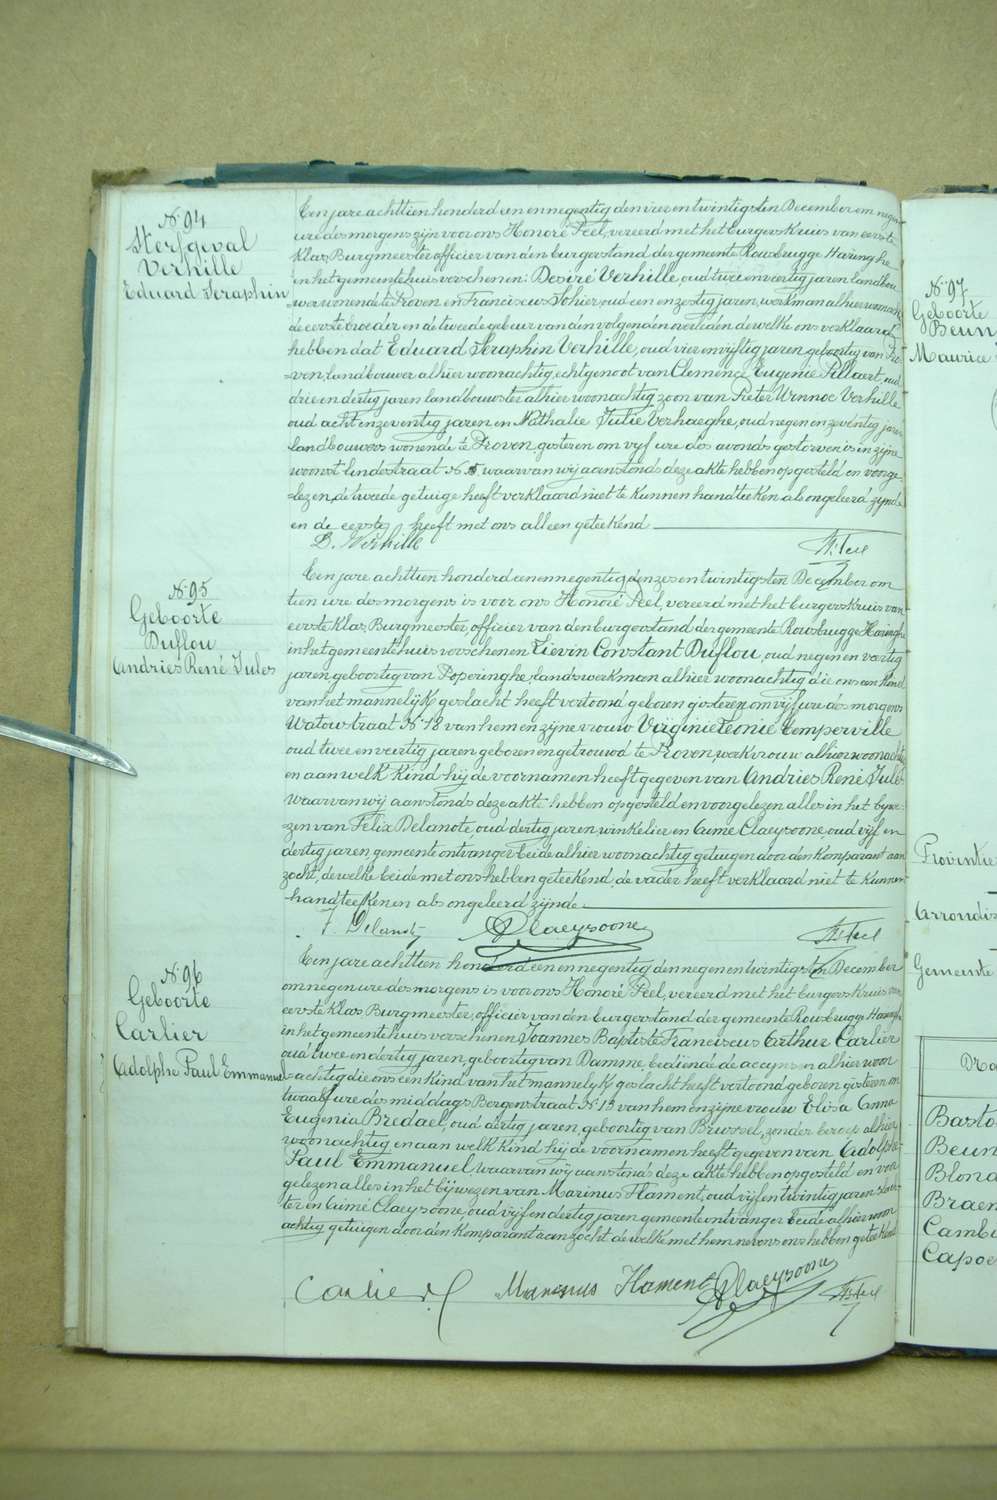 N: 94
Sterfgeval
Verhille
Eduard Seraphin
Een jare achttien honderd een en negentig den vier en twintigsten December om negen
ure des morgens zijn voor ons Honoré Feel, vereerd met het burgerskruis van eerste
klas, Burgmeester officier van den burgerstand der gemeente Rousbrugge Haringhe
in het gemeentehuis verschenen: Desiré Verhille, oud twee en veertig jaren landbou-
wer wonende te Proven en Franciscus Sohier, oud een en zestig jaren, werkman alhier woonach.
de eerste broeder en de tweede gebuur van den volgenden overleden dewelke ons verklaard
hebben dat Eduard Seraphin Verhille, oud vier en vijftig jaren geboortig van Pro-
-ven, landbouwer alhier woonachtig, echtgenoot van Clemence Eugenie Pillaert, oud
drie en dertig jaren landbouwster alhier woonachtig zoon van Pieter Winnoc Verhille
oud acht en zeventig jaren en Nathalie Julie Verhaeghe, oud negen en zeventig jaren
landbouwers wonende te Proven, gisteren om vyf ure des avonds gestorven is in zijne
woonst lindestraat N. 5 waarvan wij aanstonds deze akte hebben opgesteld en voorge-
-lezen, de tweede getuige heeft verklaard niet te kunnen handteeken als ongeleerd zijnde
en de eerste heeft met ons alleen geteekend
D. Verhille H: Feel
N: 95
Geboorte
Duflou
Andries René Jules
Een jare achttien honderd een en negentig den zes en twintigsten December om
tien ure des morgens is voor ons Honoré Feel, vereerd met het burgerskruis van
eerste klas, Burgmeester, officier van den burgerstand der gemeente Rousbrugge Haringhe
in het gemeentehuis verschenen Lievin Constant Duflou, oud negen en veertig
jaren geboortig van Poperinghe, landswerkman alhier woonachtig die ons een kind
van het mannelijk geslacht heeft vertoond geboren gisteren om vijf ure des morgens
Watoustraat N: 18 van hem en zijne vrouw Virginie Leonie Temperville
oud twee en veertig jaren geboren en getrouwd te Proven, werkvrouw alhier woonachtig
en aan welk kind hij de voornamen heeft gegeven van Andries René Jules
waarvan wij aanstonds deze akte hebben opgesteld en voorgelezen alles in het bywe-
-zen van Félix Delanote, oud dertig jaren winkelier en Aimé Claeysoone, oud vijf en
dertig jaren, gemeente ontvanger beide alhier woonachtig getuigen door den komparant aan
zocht, dewelke beide met ons hebben geteekend, de vader heeft verklaard niet te kunnen
handteekenen als ongeleerd zijnde
F. Delanote Claeysoone H: Feel
N: 96
Geboorte
Carlier
Adolphe Paul Emmanuel
Een jare achttien honderd een en negentig den negen en twintigsten December
om negen ure des morgens is voor ons Honoré Feel, vereerd met het burgerskruis van
eerste klas Burgmeester, officier van den burgerstand der gemeente Rousbrugge Haringhe
in het gemeentehuis verschenen Joannes Baptiste Franciscus Arthur Carlier
oud twee en dertig jaren, geboortig van Damme, bediende de accynsen alhier woon
-achtig die ons een kind van het mannelijk geslacht heeft vertoond geboren gisteren om
twaalf ure des middags Bergenstraat N: 13 van hem en zijne vrouw Elisa Anna
Eugenia Bredael, oud dertig jaren, geboortig van Brussel, zonder beroep alhier
woonachtig en aan welk kind hij de voornamen heeft gegeven van Adolphe
Paul Emmanuel waarvan wij aanstonds deze akte hebben opgesteld en voor
gelezen alles in het bijwezen van Marinus Flament, oud vijf en twintig jaren
ter en Aimé Claeysoone, oud vijf en dertig jaren gemeente ontvanger beide alhier woon
achtig getuigen door den komparant aanzocht dewelke met hem nevens ons hebben geteekend
Carlier Marinus Flament Claeysoone H: Feel
N: 97
Geboorte
Beun
Maurice
Provintie
Arrondis
Gemeente
Basto
Beun
Blond
Braem
Camb
Capoe